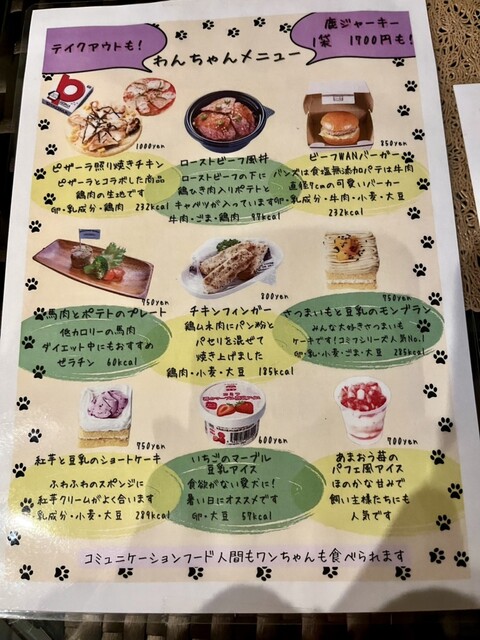 テイクアウトも!
わんちゃんメニュー
鹿ジャーキー
1袋 1700円も!
1000yen
ピザーラ照り焼きチキン
ピザーラとコラボした商品
鶏肉の生地です
卵・乳成分・鶏肉 232kcal
ローストビーフ風丼
ローストビーフの下に
鶏ひき肉入りポテトと
キャベツが入っています
牛肉・ごま・鶏肉 97kcal
850yen
ビーフWANバーガー
バン犬は食塩無添加パテは牛肉
直径7cmの可愛いバーガー
卵・乳成分・牛肉・小麦・大豆
232kcal
950yen
馬肉とポテトのプレート
他カロリーの馬肉
ダイエット中にもおすすめ
ゼラチン 60kcal
800yen
チキンフィンガー
鶏ムネ肉にパン粉と
パセリを混ぜて
焼き上げました
鶏肉・小麦・大豆 185kcal
950yen
さつまいもと豆乳のモンブラン
みんな大好きさつまいも
ケーキです!コミフシリーズ人気No.1
卵・乳・小麦・ごま・大豆 286kcal
750yen
紅芋と豆乳のショートケーキ
ふわふわのスポンジに
紅芋クリームがよく合います
乳成分・小麦・大豆 289kcal
600yen
いちごのマーブル
豆乳アイス
食欲がない愛犬に!
暑い日にオススメです
卵・大豆 59kcal
700yen
あまおう苺の
パフェ風アイス
ほのかな甘みで
飼い主様たちにも
人気です
コミュニケーションフード人間もワンちゃんも食べられます